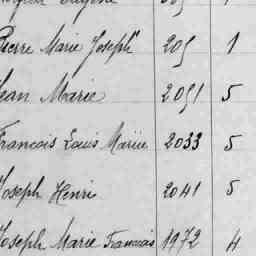 Pierre Marie Joseph 205 1
Jean Marie 2051 5
Francois Louis Mariie 2033 5
Joseph Henri 2041 5
Joseph Marie Francois 1972 4